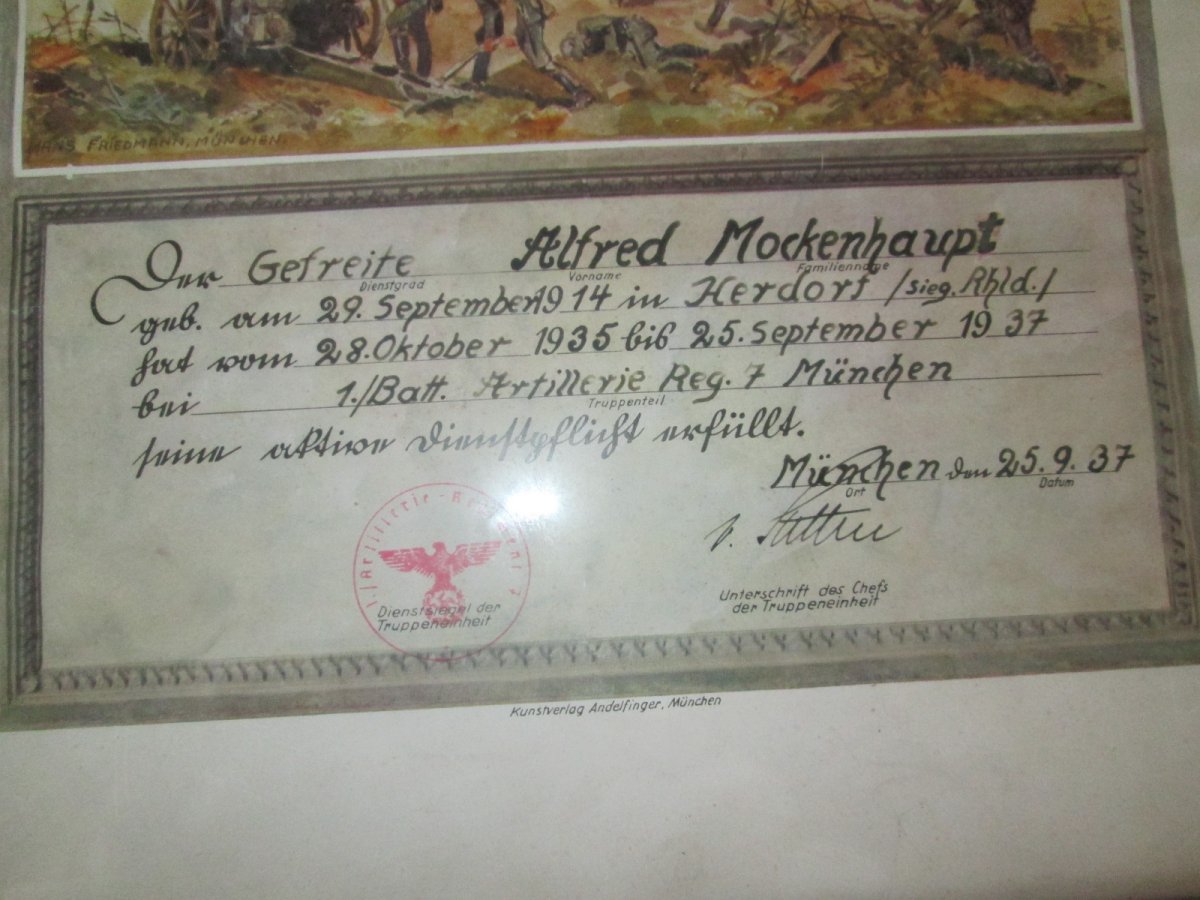 HANS FRIEDMANN, MÜNCHEN.
Der Gefreite Alfred Mockenhaupt
Dienstgrad Vorname Familienname
geb. am 29. September 1914 in Herdorf /sieg. Rhld./
hat vom 28. Oktober 1935 bis 25. September 1937
bei 1./Batt. Artillerie Reg. 7 München
Truppenteil
seine aktive Dienstpflicht erfüllt.
München den 25. 9. 37
Ort Datum
1./Artillerie-Regiment 7
Dienstsiegel der
Truppeneinheit
Unterschrift des Chefs
der Truppeneinheit
Kunstverlag Andelfinger, München